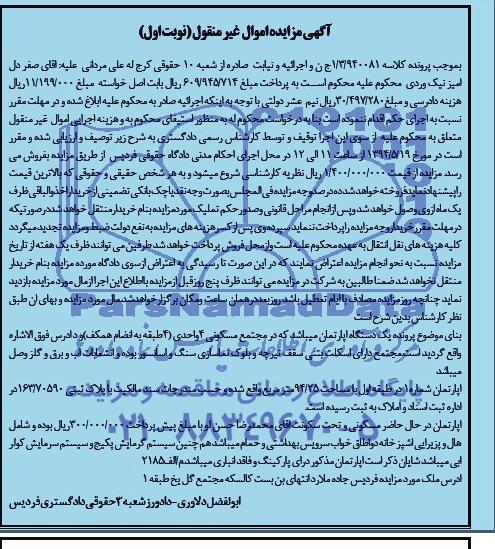 آگهی مزایده اموال غیر منقول (نوبت اول)
بموجب پرونده کلاسه ۱/۳/۹۴۰۰۸۱ج ن و اجرائیه و نیابت صادره از شعبه ۱۰ حقوقی کرج له علی مردانی علیه: آقای صفر دل
امیز نیک وردی محکوم علیه محکوم است به پرداخت مبلغ ۶۰۹/۹۴۵/۷۱۴ ریال بابت اصل خواسته مبلغ ۱۱/۱۹۹/۰۰۰ریال
هزینه دادرسی و مبلغ ۳۰/۴۹۷/۲۸۰ ریال نیم عشر دولتی با توجه به اینکه اجرائیه صادر به محکوم علیه ابلاغ شده و در مهلت مقرر
نسبت به اجرای حکم اقدام ننموده است بنا به درخواست محکوم له به منظور استیفای محکوم به و هزینه اجرایی اموال غیر منقول
متعلق به محکوم علیه از سوی این اجرا توقیف و توسط کارشناس رسمی دادگستری به شرح زیر توصیف و ارزیابی شده و مقرر
است در مورخ ۱۳۹۴/۵/۱۹ از ساعت ۱۱ الی ۱۲ در محل اجرای احکام مدنی دادگاه حقوقی فردیس از طریق مزایده بفروش می
رسد مزایده از قیمت ۱/۴۰۰/۰۰۰/۰۰۰ ریال نظریه کارشناسی شروع میشود و به هر شخص حقیقی و حقوقی که بالاترین قیمت
را پیشنهاد نماید فروخته خواهد شد ده درصد وجه مزایده فی المجلس بصورت وجه نقد یا چک بانکی تضمینی از خریدار اخذ و الباقی ظرف
یک ماه از وی وصول خواهد شد و پس از انجام مراحل قانونی و صدور حکم تملیک مورد مزایده بنام خریدار منتقل خواهد شد در صورتیکه
در مهلت مقرر خریدار وجه مزایده را پرداخت ننماید سپرده وی پس از کسر هزینه های مزایده به نفع دولت ضبط و مزایده تجدید میگردد
کلیه هزینه های نقل انتقال به عهده محکوم علیه است و از محل فروش پرداخت خواهد شد طرفین می توانند ظرف یک هفته از تاریخ
مزایده نسبت به نحو انجام مزایده اعتراض نمایند که در این صورت تا رسیدگی به اعتراض از سوی دادگاه مورد مزایده بنام خریدار
منتقل نخواهد شد ضمنا طالبین به شرکت در مزایده می توانند ظرف پنج روز قبل از مزایده با اطلاع این اجرا از مال مورد مزایده بازدید
نماید چنانچه روز مزایده مصادف با ایام تعطیل باشد روز بعد در همان ساعت و مکان برگزار خواهد شد مال مورد مزایده و بهای ان طبق
نظر کارشناس بدین شرح است
بنای موضوع پرونده یک دستگاه اپارتمان میباشد که در مجتمع مسکونی ۴واحدی (۴طبقه به انضمام همکف)و در ادرس فوق الاشاره
واقع گردید است مجتمع دارای اسکلت بتنی سقف تیرچه و بلوک نماسازی سنگ و آسانسور بوده و انشعابات آب و برق و گاز وصل
میباشد
اپارتمان شماره ۱ در طبقه اول با مساحت ۹۴/۲۵متر مربع واقع شده و حسب مندرجات سند مالکیت با پلاک ثبتی ۱۶۳/۷۰۵۹۰در
اداره ثبت اسناد و املاک به ثبت رسیده است.
اپارتمان در حال حاضر مسکونی و تحت سکونت آقای محمدرضا حسن لو با مبلغ پیش پرداخت ۳۰۰/۰۰۰/۰۰۰ریال بوده و شامل
هال و پزیرایی اشپز خانه دو اطاق خواب سرویس بهداشتی و حمام میباشد هم چنین سیستم گرمایش پکیج و سیستم سرمایش کولر
ابی میباشد شایان ذکر است اپارتمان مذکور درای پارکینگ و فاقد انباری میباشد م/الف ۲۱۸۵
ادرس ملک مورد مزایده فردیس جاده ملارد انتهای بن بست کالسکه مجتمع گل یخ طبقه ۱
ابولفضل دلاوری-دادورز شعبه ۳ حقوقی دادگستری فردیس